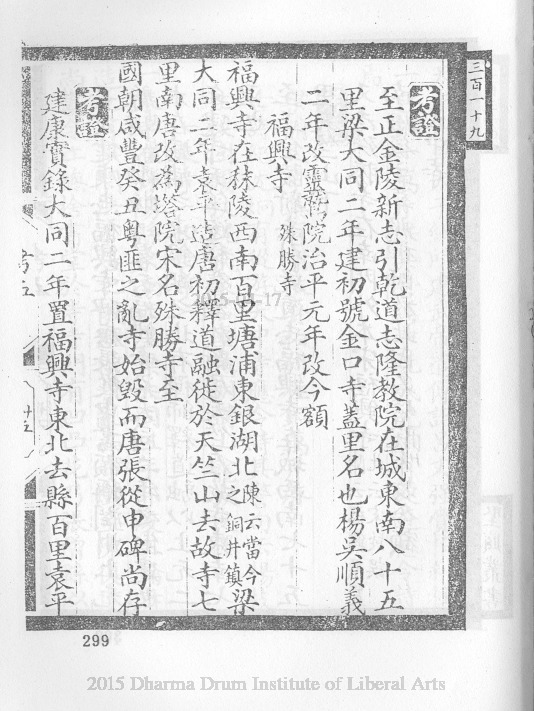 三百一十九
考證
至正金陵新志引乾道志隆教院在城東南八十五
里梁大同二年建初號金口寺蓋里名也楊吳順義
二年改靈鷲院治平元年改今額
福興寺 殊勝寺
福興寺在秣陵西南百里塘浦東銀湖北陳云當今之銅井鎮梁
大同二年袁平造唐初釋道融徙於天竺山去故寺七
里南唐改為塔院宋名殊勝寺至
國朝咸豐癸丑粵匪之亂寺始毀而唐張從申碑尚存
考證
建康實錄大同二年置福興寺東北去縣百里袁平
299
2015 Dharma Drum Institute of Liberal Arts